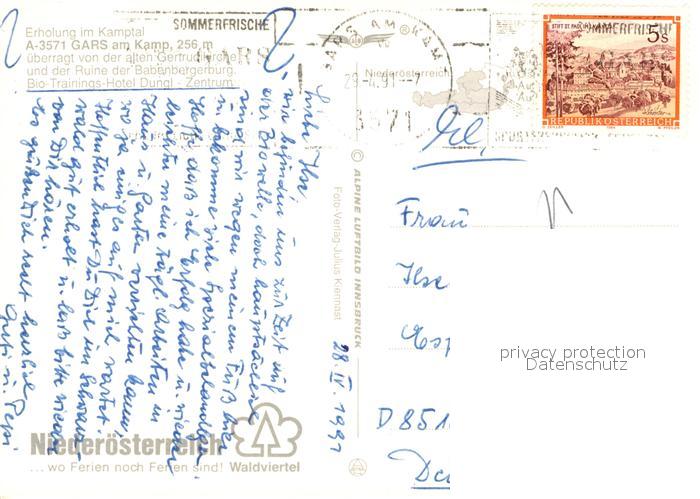 Erholung im Kamptal
A-3571 GARS am Kamp, 256 m
überragt von der alten Gertrudkirche
und der Ruine der Babenbergerburg.
Bio-Trainings-Hotel Dungl - Zentrum
SOMMERFRISCHE
GARS
GARS AM KAMP
29.-4.91-
3571
Niederösterreich
SOMMERFRISCHE
STIFT ST. PAUL IM
5s
REPUBLIK ÖSTERREICH
28. IV. 1991
Liebe Ilse,
wir befinden uns zur Zeit auf
der Biowelle, doch hauptsächlich
sind wir wegen meinem Fuß hier
u. bekomme viele Spezialbehandlungen.
Hoffe daß ich Erfolg habe u. wieder
leichter meine tägl. Arbeiten in
Haus u. Garten verrichten kann,
wo ja einiges auf mich wartet.
Hoffentlich hast Du Dich im Schwarz-
wald gut erholt u. laß bitte wieder
von Dir hören.
Es grüßen Dich recht herzlich
© ALPINE LUFTBILD INNSBRUCK
Foto-Verlag-Julius Kiennast
Frau
Ilse
D 851
privacy protection
Datenschutz
Niederösterreich
... wo Ferien noch Ferien sind! Waldviertel